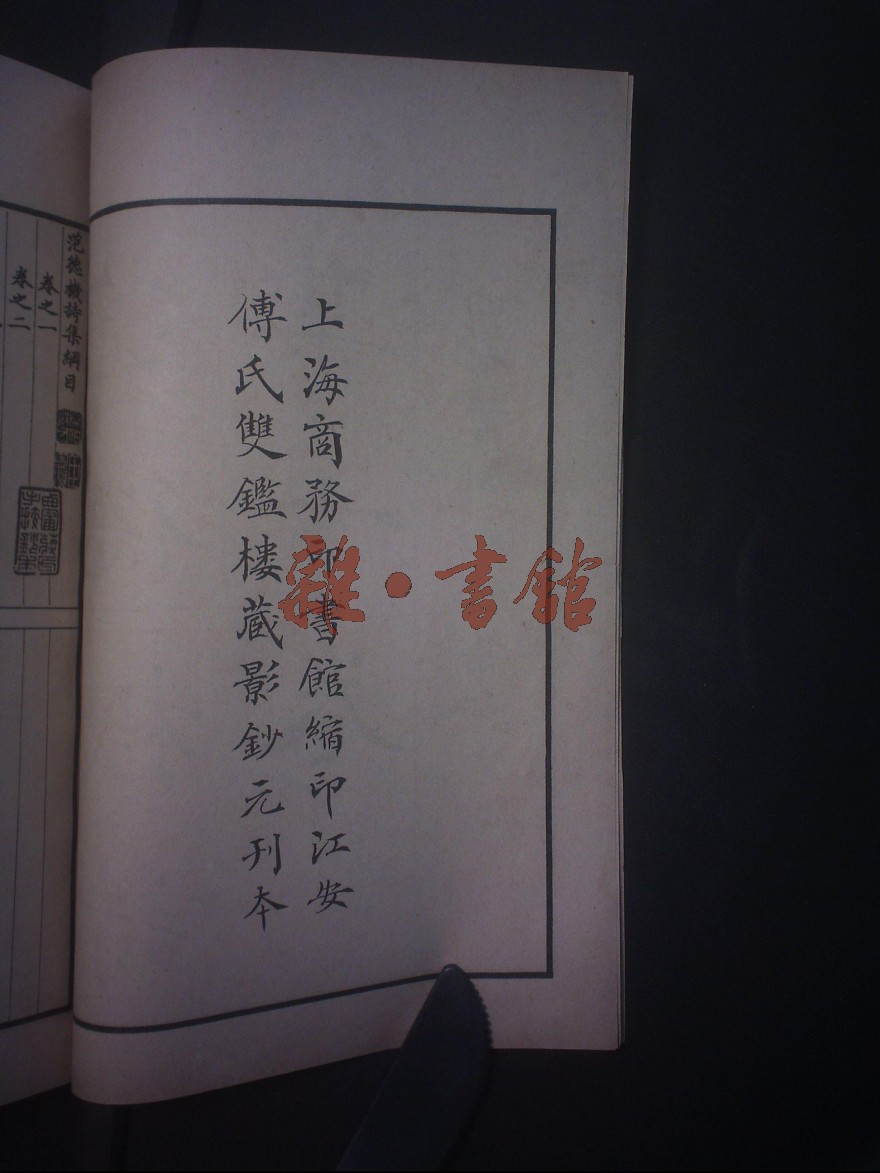 上海商務印書館縮印江安
傅氏雙鑑樓藏影鈔元刊本
范德機詩集綱目
卷之一
卷之二
雜·書館